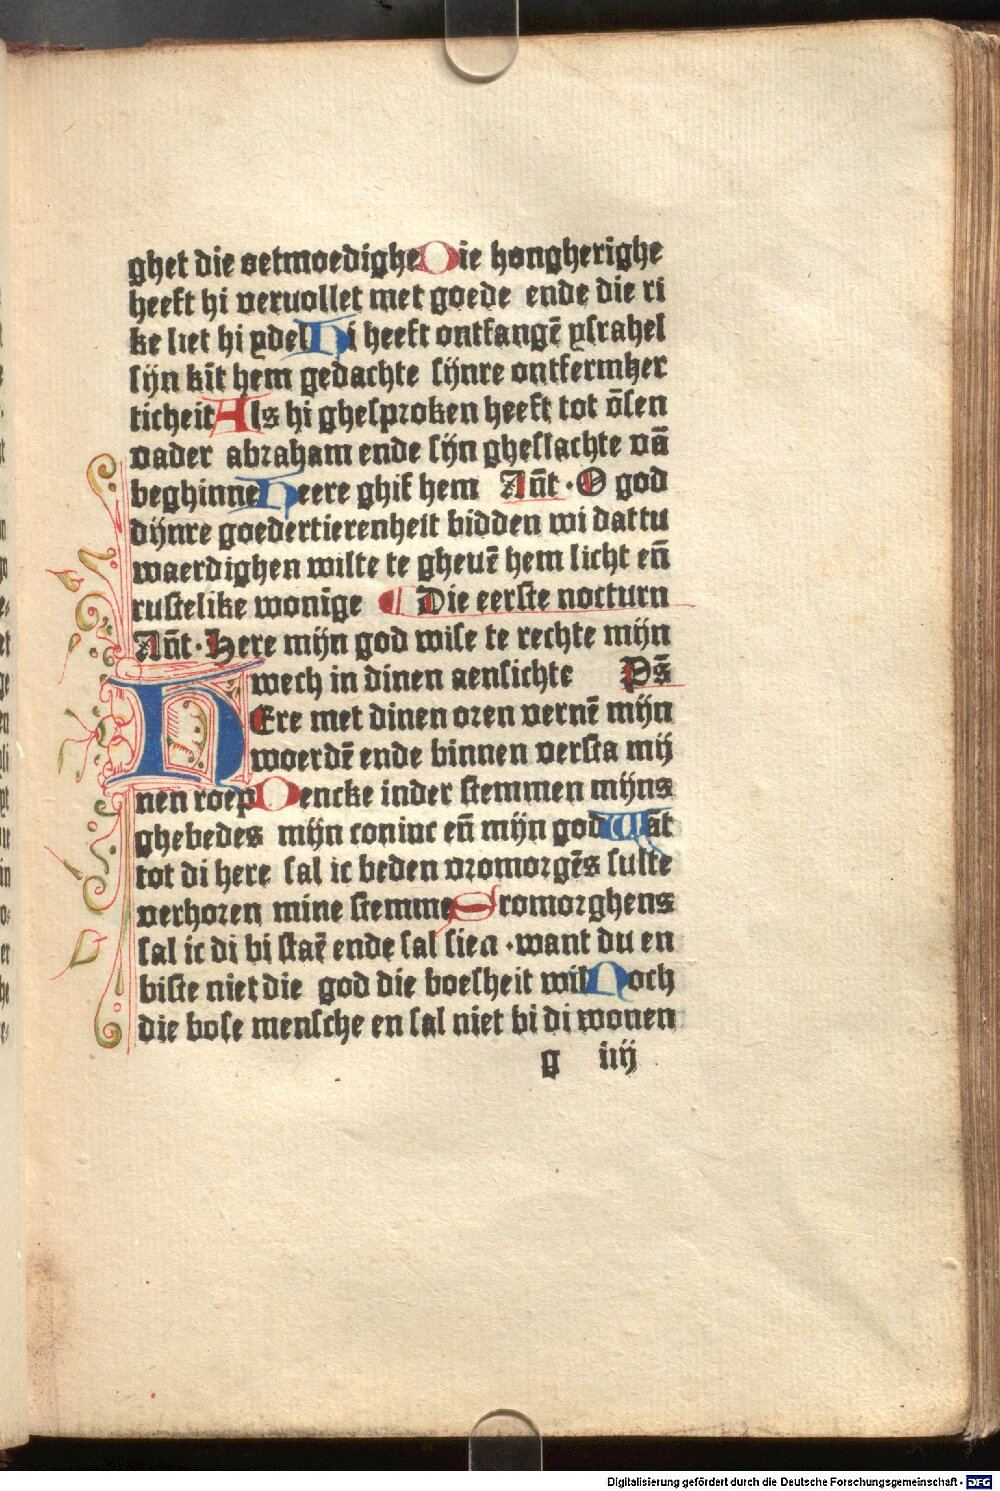 ghet die oetmoedighe Die hongherighe
heeft hi veruollet met goede ende die ri
ke liet hi ydel Hi heeft ontfangē ysrahel
sijn kīt hem gedachte sijnre ontfermher
ticheit Als hi ghesproken heeft tot ōsen
vader abraham ende sijn gheslachte vā
beghinne Heere ghif hem Añt · O god
dijnre goedertierenheit bidden wi dattu
waerdighen wilte te gheuē hem licht eñ
rustelike wonīge Die eerste nocturn
Añt · Here mijn god wise te rechte mijn
wech in dinen aensichte Ps̄
HEre met dinen oren vernē mijn
woerdē ende binnen versta mij
nen roep Dencke inder stemmen mijns
ghebedes mijn coninc eñ mijn god Wāt
tot di here sal ic beden vromorgēs sulte
verhoren mine stemme Vromorghens
sal ic di bi staē ende sal sien · want du en
biste niet die god die boesheit wil Noch
die bose mensche en sal niet bi di wonen
g iiij
Digitalisierung gefördert durch die Deutsche Forschungsgemeinschaft - DFG